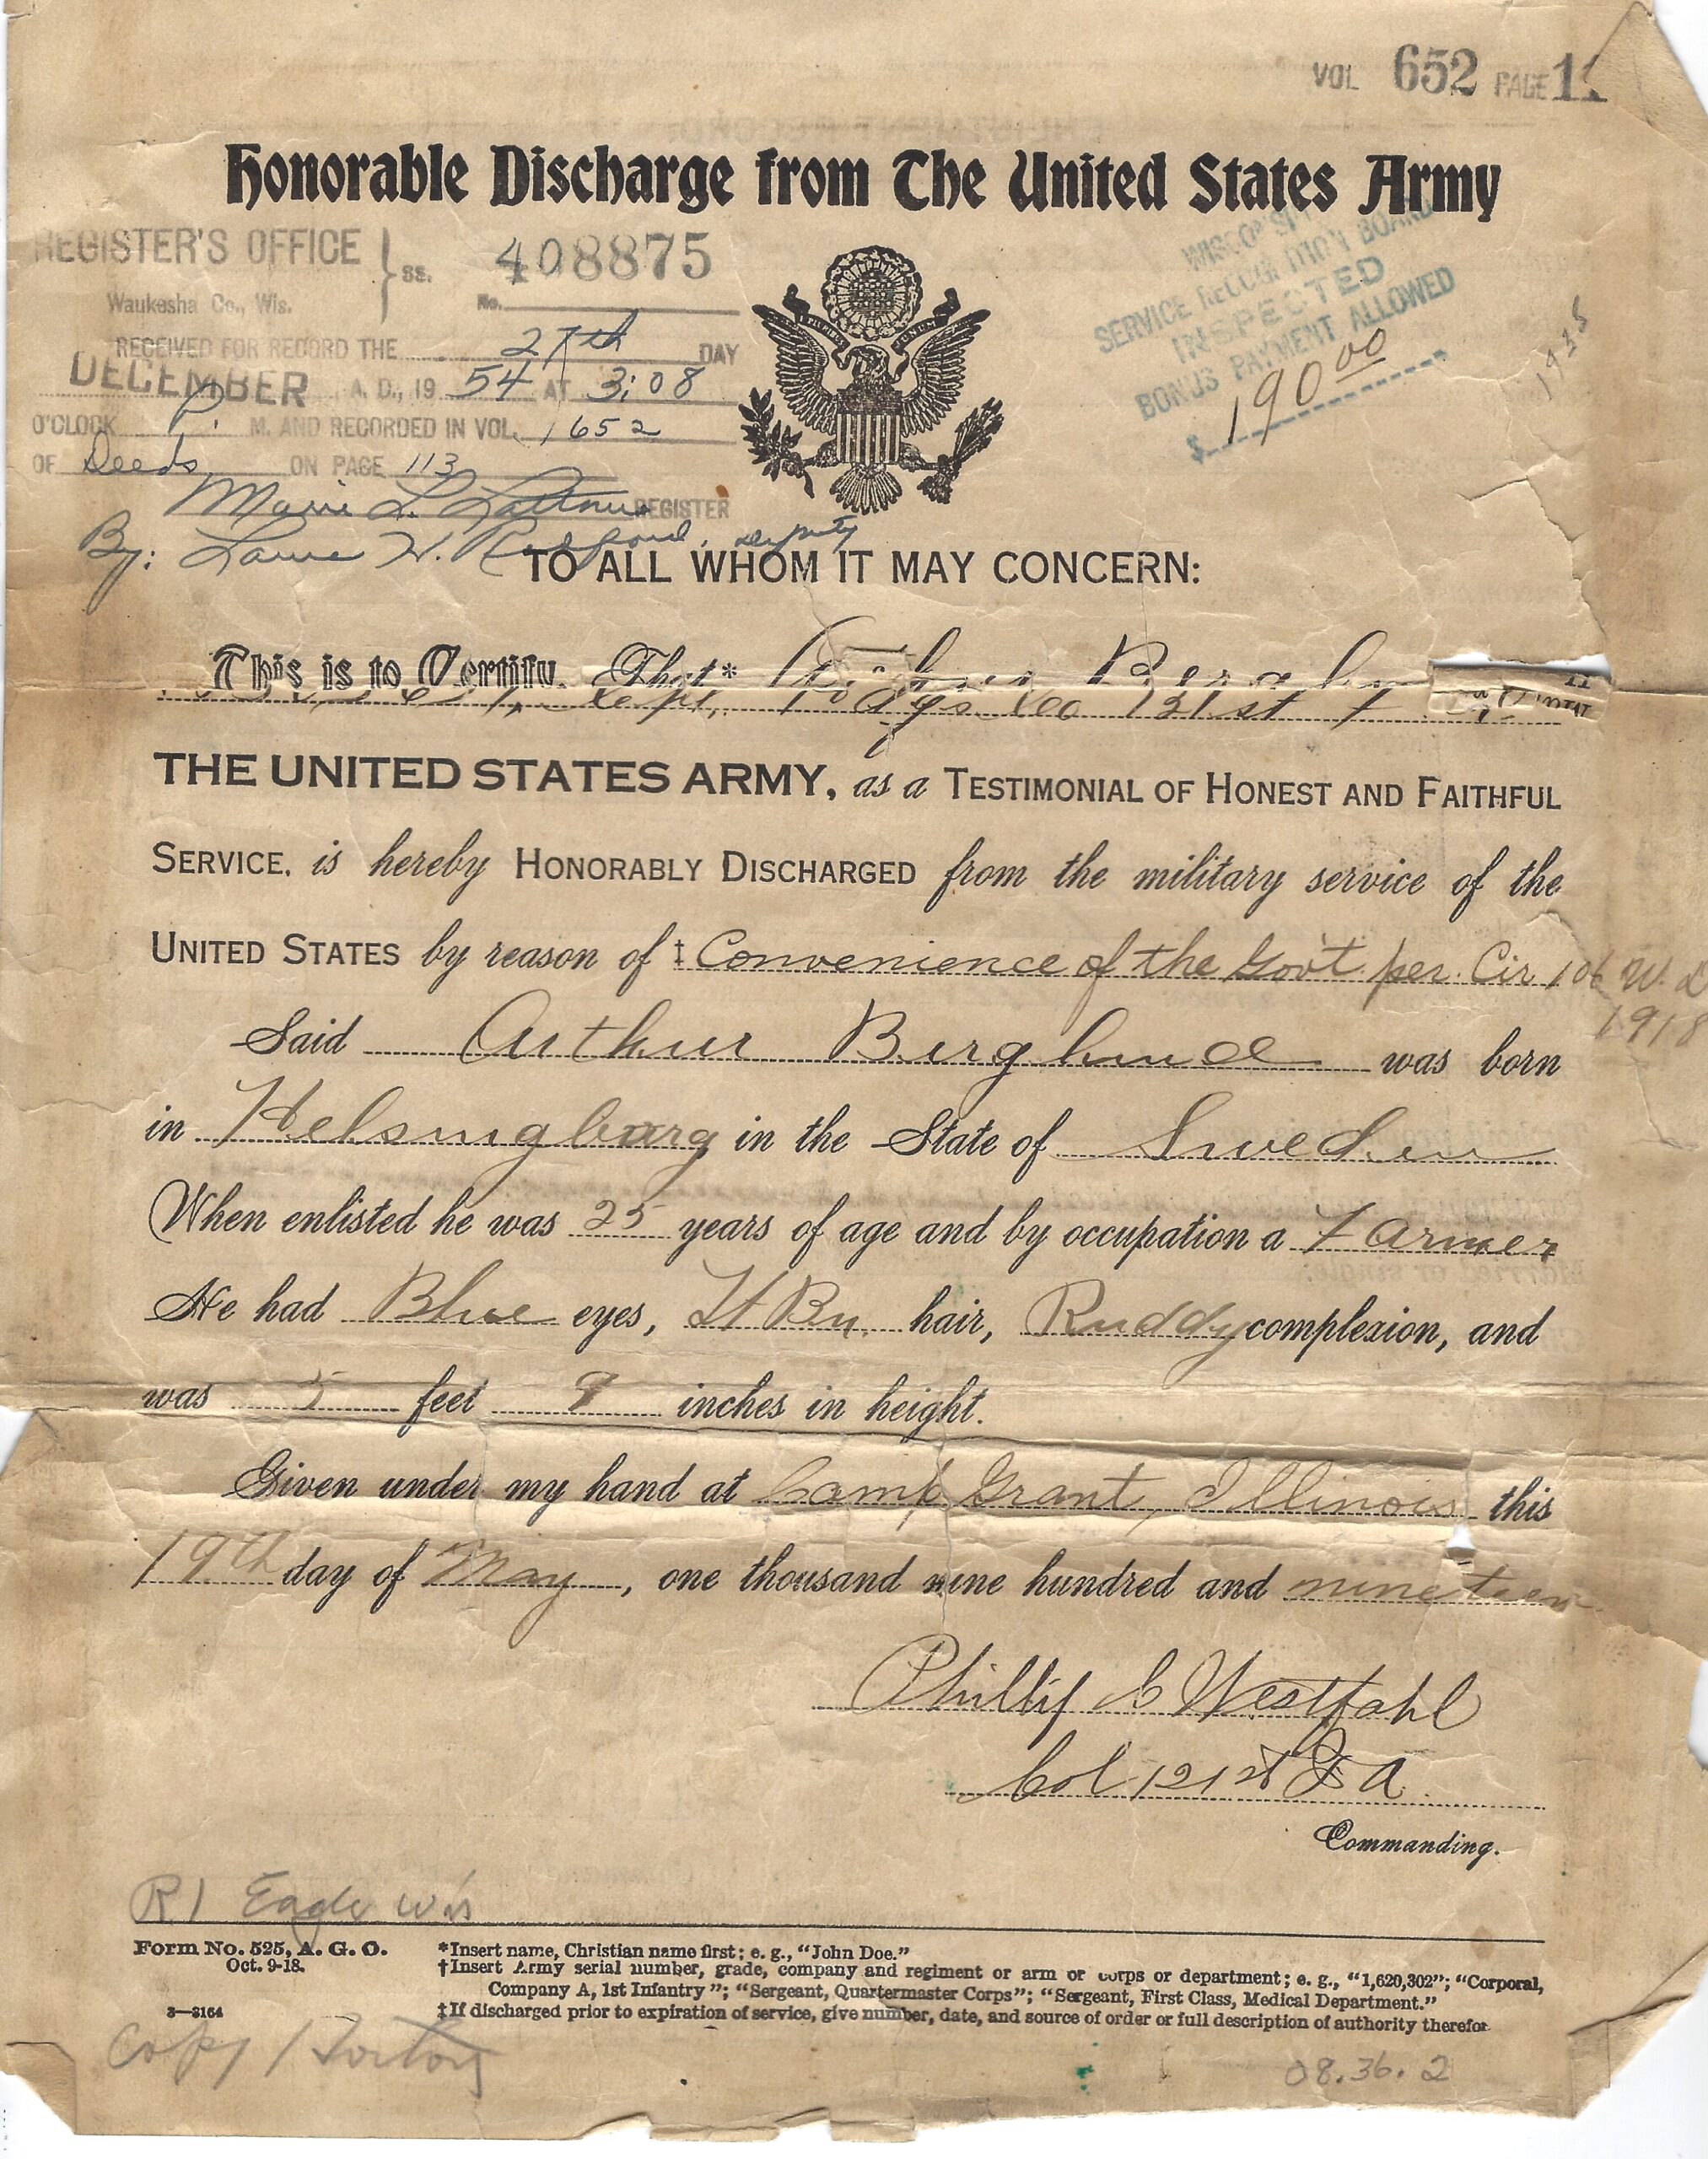 VOL 652 PAGE
Honorable Discharge from The United States Army
REGISTER'S OFFICE } ss. 408875
Waukesha Co., Wis. No.
RECEIVED FOR RECORD THE 27th DAY
DECEMBER A. D., 19 54 AT 3:08
O'CLOCK P. M. AND RECORDED IN VOL. 652
OF Deeds ON PAGE 113
REGISTER
By: H. deputy
WISCONSIN
SERVICE RECOGNITION BOARD
INSPECTED
BONUS PAYMENT ALLOWED
$ 190 00
1935
TO ALL WHOM IT MAY CONCERN:
This is to Certify, That* Arthur
Co 121st F
THE UNITED STATES ARMY, as a TESTIMONIAL OF HONEST AND FAITHFUL
SERVICE, is hereby HONORABLY DISCHARGED from the military service of the
UNITED STATES by reason of ‡ Convenience of the Gov't per. Cir 106 W. D
1918
Said Arthur Berglund was born
in Helsingborg in the State of Sweden
When enlisted he was 25 years of age and by occupation a Farmer
He had Blue eyes, Lt Bn. hair, Ruddy complexion, and
was 5 feet inches in height.
Given under my hand at Camp Grant, Illinois this
19th day of May, one thousand nine hundred and nineteen
Phillip C Westfahl
Col 121st F A
Commanding.
R1 Eagle Wis
Form No. 525, A. G. O. *Insert name, Christian name first; e. g., "John Doe."
Oct. 9-18. †Insert Army serial number, grade, company and regiment or arm or corps or department; e. g., "1,620,302"; "Corporal,
Company A, 1st Infantry"; "Sergeant, Quartermaster Corps"; "Sergeant, First Class, Medical Department."
3—3164 ‡If discharged prior to expiration of service, give number, date, and source of order or full description of authority therefor.
Copy
08.36.2